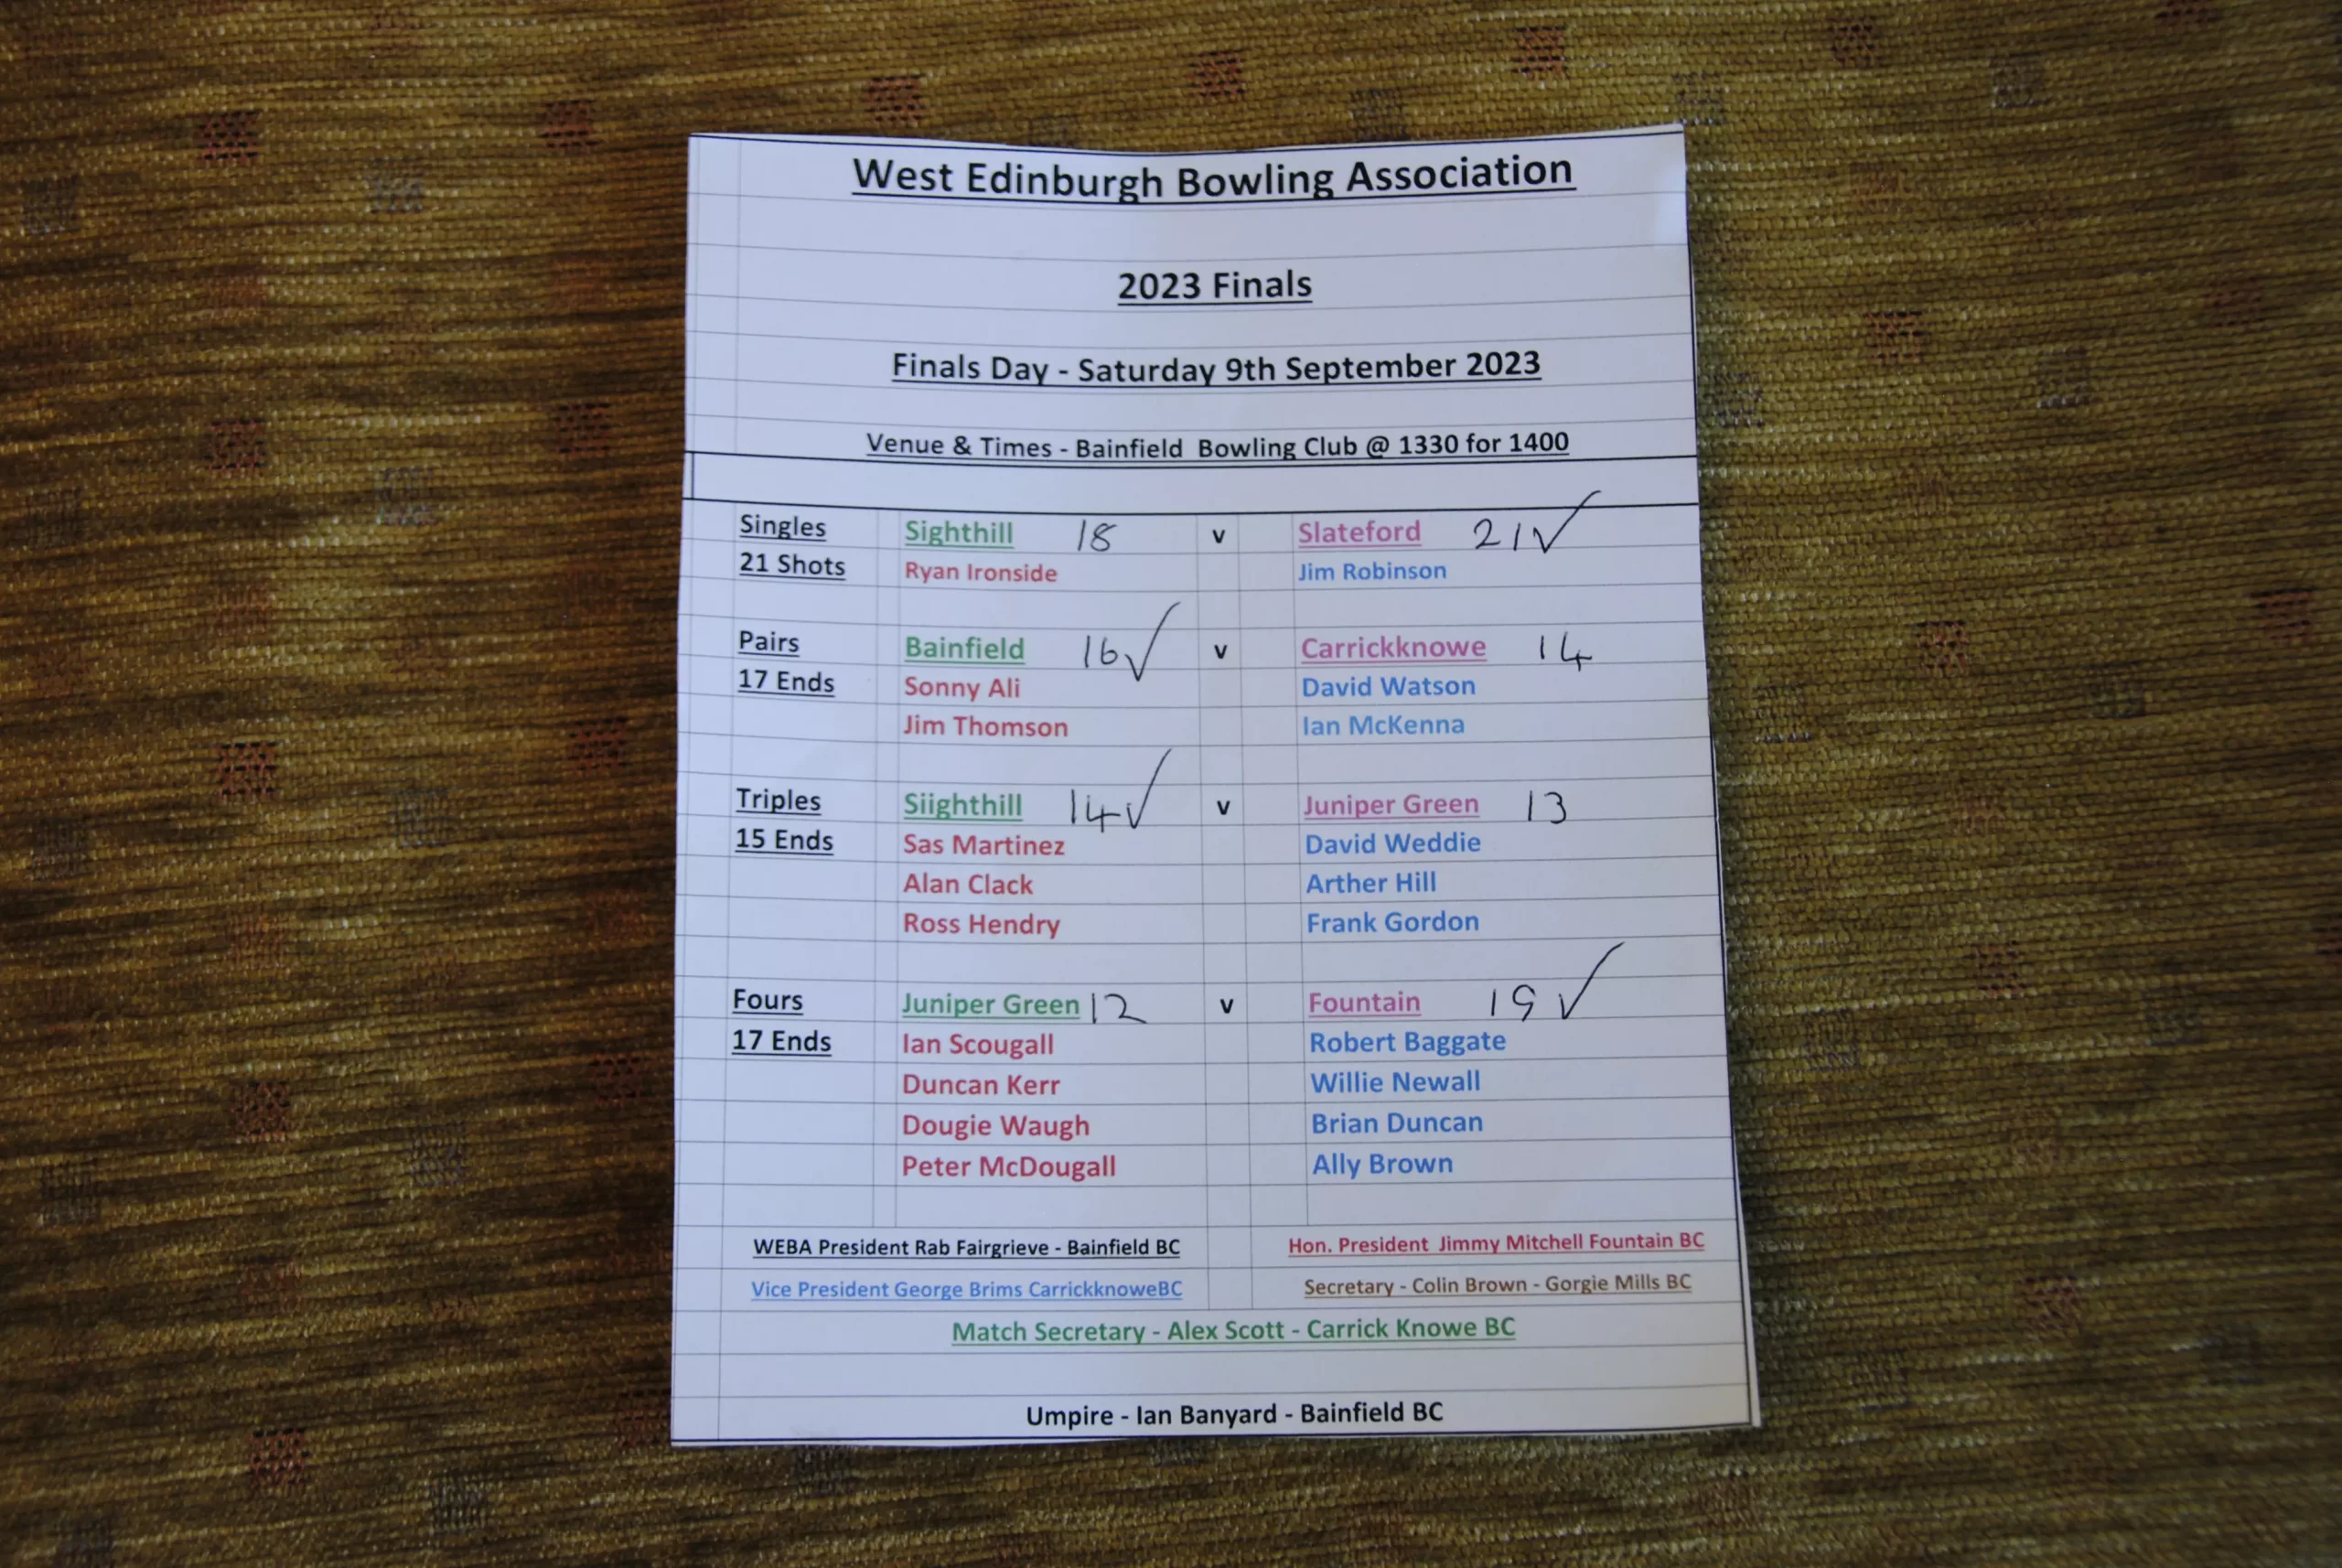 West Edinburgh Bowling Association
2023 Finals
Finals Day - Saturday 9th September 2023
Venue & Times - Bainfield Bowling Club @ 1330 for 1400
Singles Sighthill 18 v Slateford 21 ✓
21 Shots Ryan Ironside Jim Robinson
Pairs Bainfield 16 ✓ v Carrickknowe 14
17 Ends Sonny Ali David Watson
Jim Thomson Ian McKenna
Triples Siighthill 14 ✓ v Juniper Green 13
15 Ends Sas Martinez David Weddie
Alan Clack Arther Hill
Ross Hendry Frank Gordon
Fours Juniper Green 12 v Fountain 19 ✓
17 Ends Ian Scougall Robert Baggate
Duncan Kerr Willie Newall
Dougie Waugh Brian Duncan
Peter McDougall Ally Brown
WEBA President Rab Fairgrieve - Bainfield BC Hon. President Jimmy Mitchell Fountain BC
Vice President George Brims CarrickknoweBC Secretary - Colin Brown - Gorgie Mills BC
Match Secretary - Alex Scott - Carrick Knowe BC
Umpire - Ian Banyard - Bainfield BC